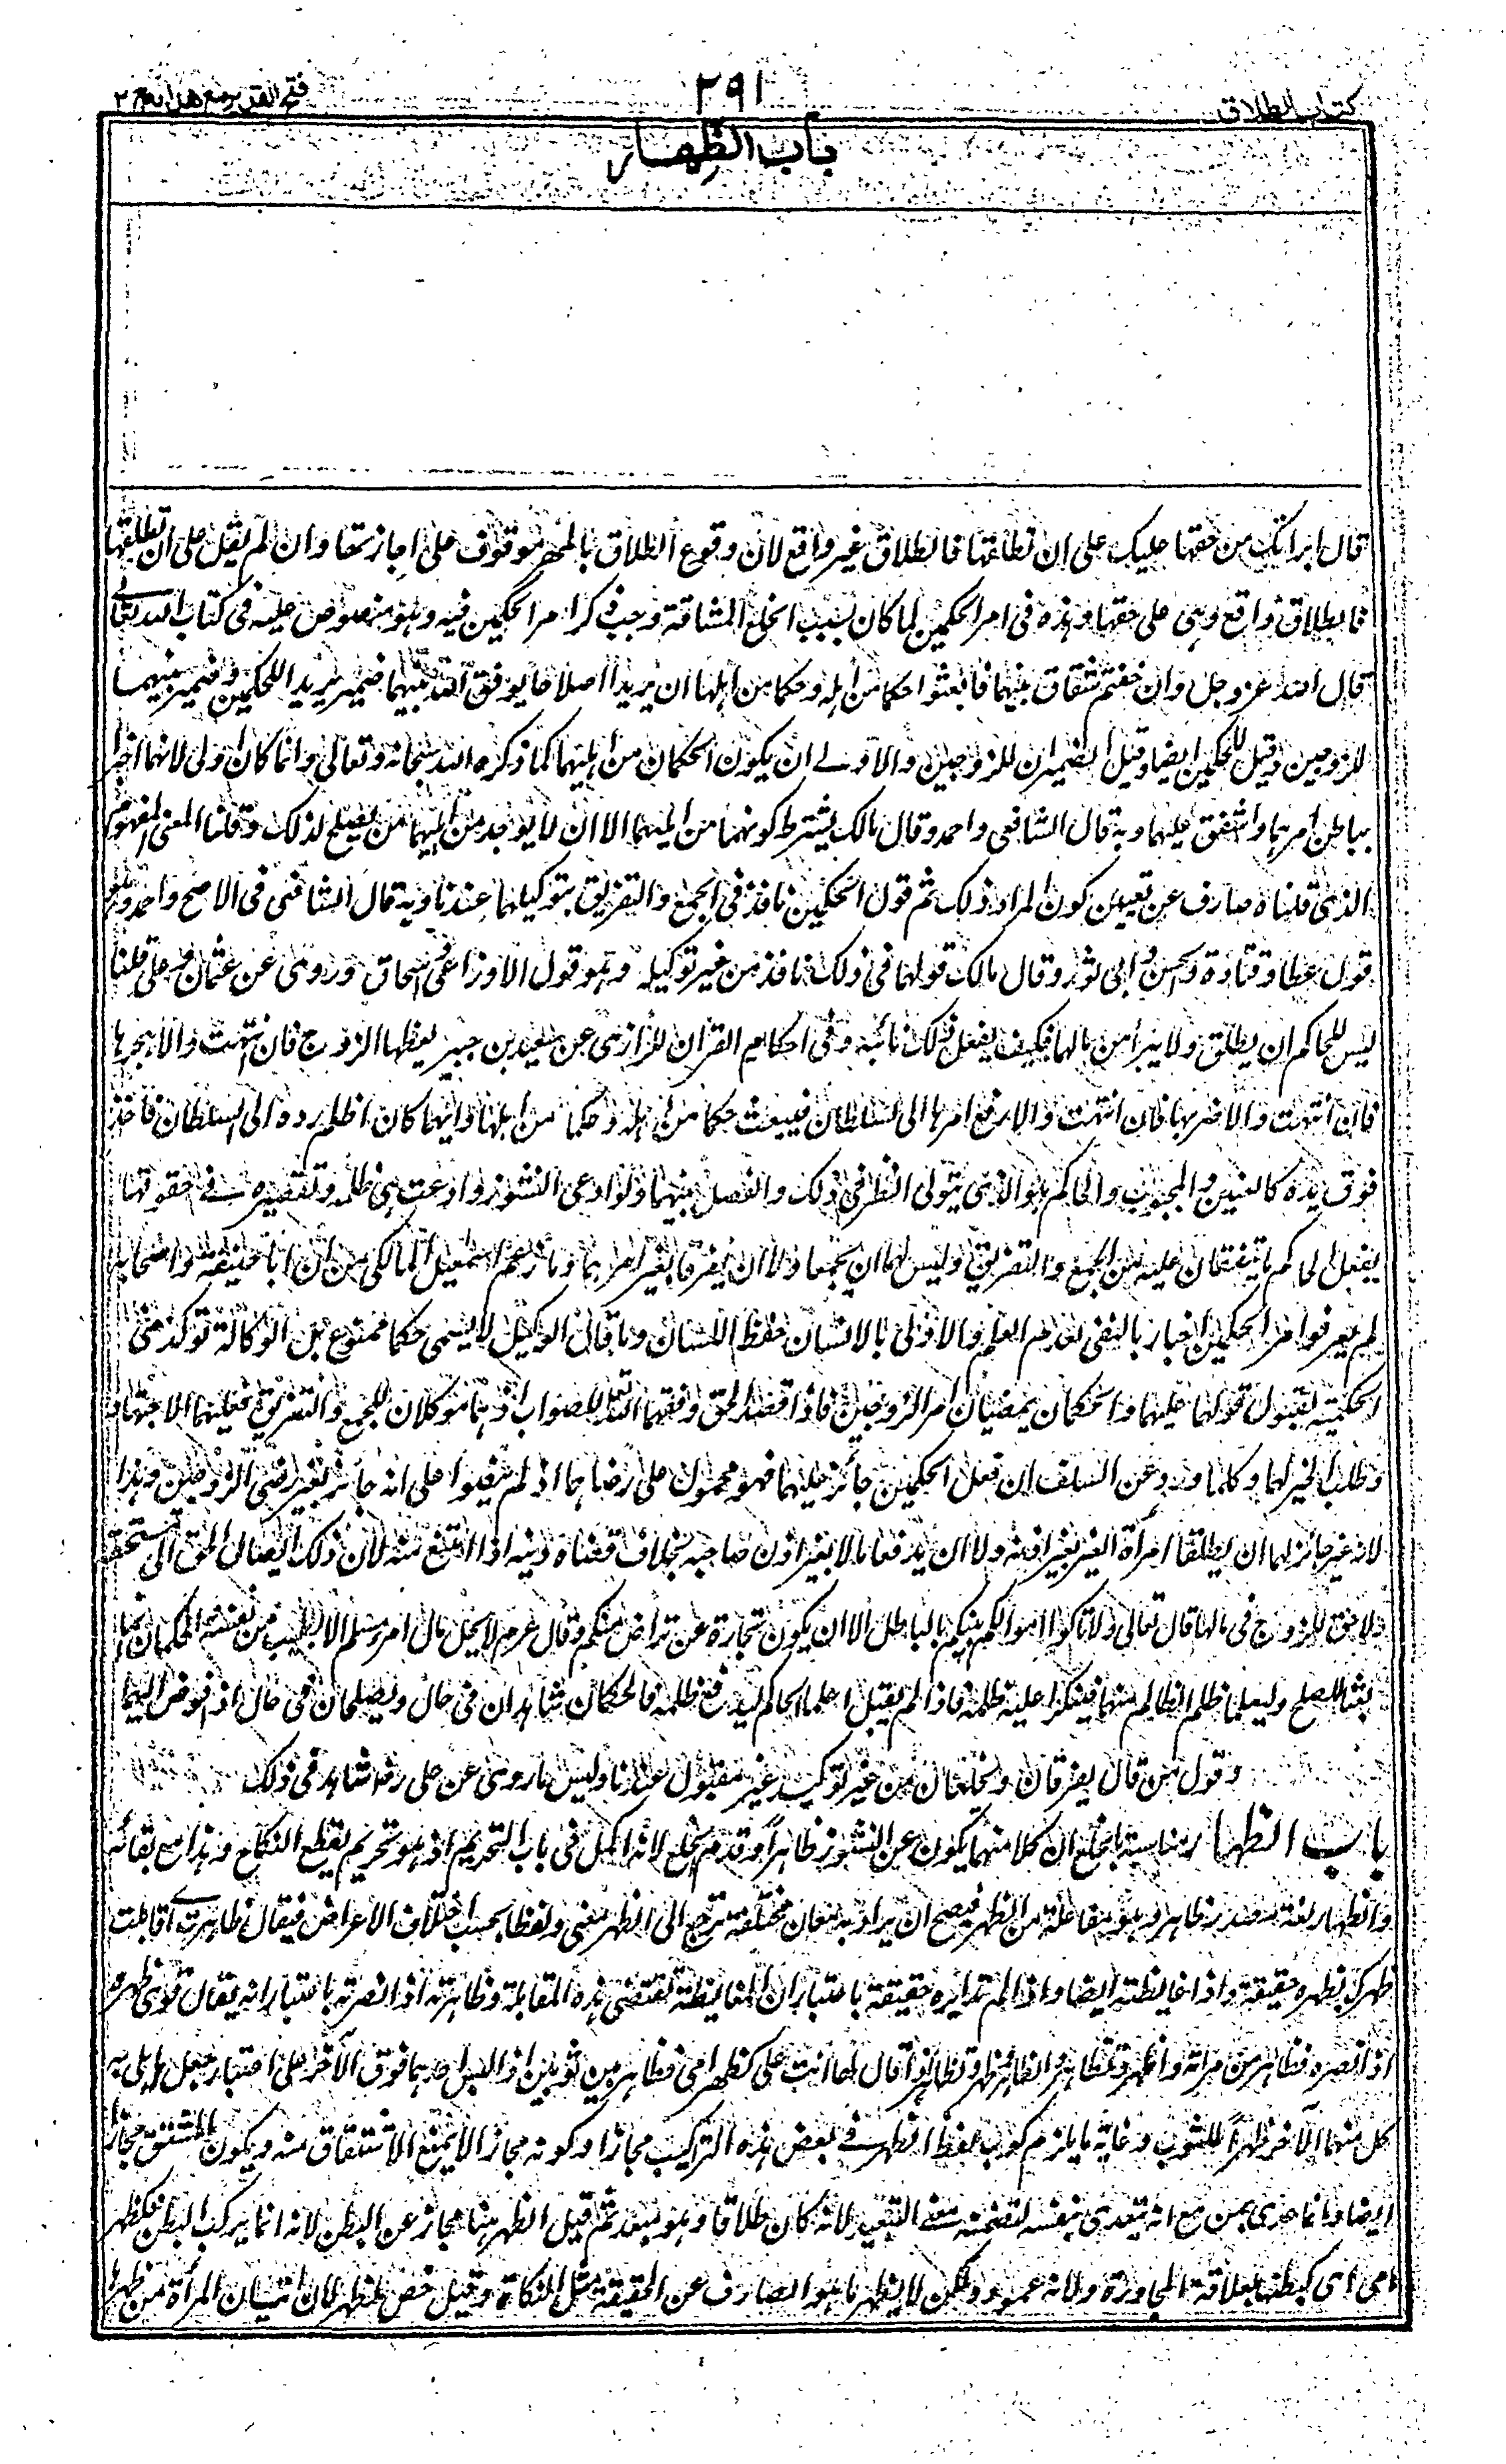 كتاب الطلاق
٢٩١
فتح القدير مع هدايه ج ٢
باب الظهار
قال ابرأتك من حقها عليك على ان تطلقها فالطلاق غير واقع لان وقوع الطلاق بالمهر موقوف على اجازتها وان لم يقل على ان تطلقها
فالطلاق واقع وهى على حقها وهذه فى امر الحكمين لما كان بسبب الخلع المشاقة وجب ذكر امر الحكمين فيه وهو منصوص عليه فى كتاب الله تعالى
قال الله عز وجل وان خفتم شقاق بينهما فابعثوا حكما من اهله وحكما من اهلها ان يريدا اصلاحا يوفق الله بينهما ضمير يريدا للحكمين وضمير بينهما
للزوجين وقيل للحكمين ايضا وقيل الضميران للزوجين والاولى ان يكون الحكمان من اهليهما كما ذكره الله سبحانه وتعالى وانما كان اولى لانهما اخبر
بباطن امرهما واشفق عليهما وبه قال الشافعى واحمد وقال مالك يشترط كونهما من اهليهما الا ان لا يوجد من اهليهما من يصلح لذلك وقلنا المعنى المفهوم
الذى قلناه صارف عن تعيين كون المراد ذلك ثم قول الحكمين نافذ فى الجمع والتفريق بتوكيلهما عندنا وبه قال الشافعى فى الاصح واحمد وهو
قول عطا وقتادة والحسن وابى ثور وقال مالك قولهما فى ذلك نافذ من غير توكيله وهو قول الاوزاعى واسحاق وروى عن عثمان وعلى قلنا
ليس للحاكم ان يطلق ولا يبرأ من مالها فكيف يفعل ذلك نائبه وفى احكام القرآن للرازى عن سعيد بن جبير يعظها الزوج فان انتهت والا هجرها
فان انتهت والا ضربها فان انتهت والا رفع امرها الى السلطان فيبعث حكما من اهله وحكما من اهلها وايهما كان اظلم رده الى السلطان فاخذ
فوق يده كالعنين والمجبوب والحاكم هو الذى يتولى النظر فى ذلك والفصل بينهما ولو ادعى النشوز وادعت هى ظلمه وتقصيره فى حقوقها
يفعل الحاكم ما يتفقان عليه من الجمع والتفريق وليس لهما ان يجمعا ولا ان يفرقا بغير امرهما وما زعم اسمعيل المالكى من ان ابا حنيفة واصحابه
لم يعرفوا امر الحكمين اخبار بالنفى لعدم العلم والاولى بالانسان حفظ اللسان وما قال الوكيل لا يسمى حكما ممنوع بل الوكالة توكد معنى
الحكمية لقبول قولهما عليهما والحكمان يمضيان امر الزوجين فاذا قصد الحق وفقهما الله للصواب اذ هما موكلان للجمع والتفريق فعليهما الاجتهاد
وطلب الخير لهما وكلما ورد عن السلف ان فعل الحكمين جائز عليهما فهو محمول على رضاهما اذ لم ينقلوا على انه جائز بغير رضى الزوجين وهذا
لانه غير جائز لهما ان يطلقا امرأة الغير بغير اذنه ولا ان يدفعا مالا بغير اذن صاحبه بخلاف قضاه دينه اذا امتنع منه لان ذلك ايصال الحق الى مستحقه
ولا حق للزوج فى مالها قال تعالى ولا تاكلوا اموالكم بينكم بالباطل الا ان يكون تجارة عن تراض منكم وقال عم لا يحل مال امرء مسلم الا بطيب من نفسه الحكمان انما
بعثا للصلح وليعلما ظلم الظالم منهما فينكرا عليه ظلمه فاذا لم يقبل اعلما الحاكم ليدفع ظلمه فالحكمان شاهدان فى حال ويصلحان فى حال اذ فوض اليهما
وقول من قال يفرقان ويخلعان من غير توكيل غير مقبول عندنا وليس ما روى عن على رض شاهد فى ذلك
باب الظهار مناسبته بالخلع ان كلا منهما يكون عن النشوز ظاهرا وقدم الخلع لانه اكمل فى باب التحريم اذ هو تحريم بقطع النكاح وهذا مع بقائه
والظهار لغة مصدر ظاهر وهو مفاعلة من الظهر فيصح ان يراد به معان مختلفة ترجع الى الظهر معنى ولفظا بحسب اختلاف الاعراض فيقال ظاهرت اى قابلت
ظهرك بظهره حقيقة واذا غايظته ايضا واذا لم تدابره حقيقة باعتبار ان المغايظة تقتضى هذه المقابلة وظاهرته اذا نصرته باعتبار انه يقال قوى ظهره
اذا نصره وظاهر من امرأته واظهر وتظاهر واظاهر وظهر وتظهر اذا قال لها انت على كظهر امى وظاهر بين ثوبين اذا لبس احدهما فوق الآخر على اعتبار جعل ما يلى به
كل منهما الآخر ظهرا للثوب وغاية ما يلزم كون لفظ الظهر فى بعض هذه التراكيب مجازا وكونه مجازا لا يمنع الاشتقاق منه ويكون المشتق مجازا
ايضا وانما عدى بمن مع انه يتعدى بنفسه لتضمنه معنى التبعيد لانه كان طلاقا وهو مبعد ثم قيل الظهر هنا مجاز عن البطن لانه انما يركب البطن فكظهر
امى اى كبطنها بعلاقة المجاورة ولانه عموده ولكن لا يظهر ما هو الصارف عن الحقيقة مثل النكاة وقيل خص الظهر لان اتيان المرأة من ظهرها